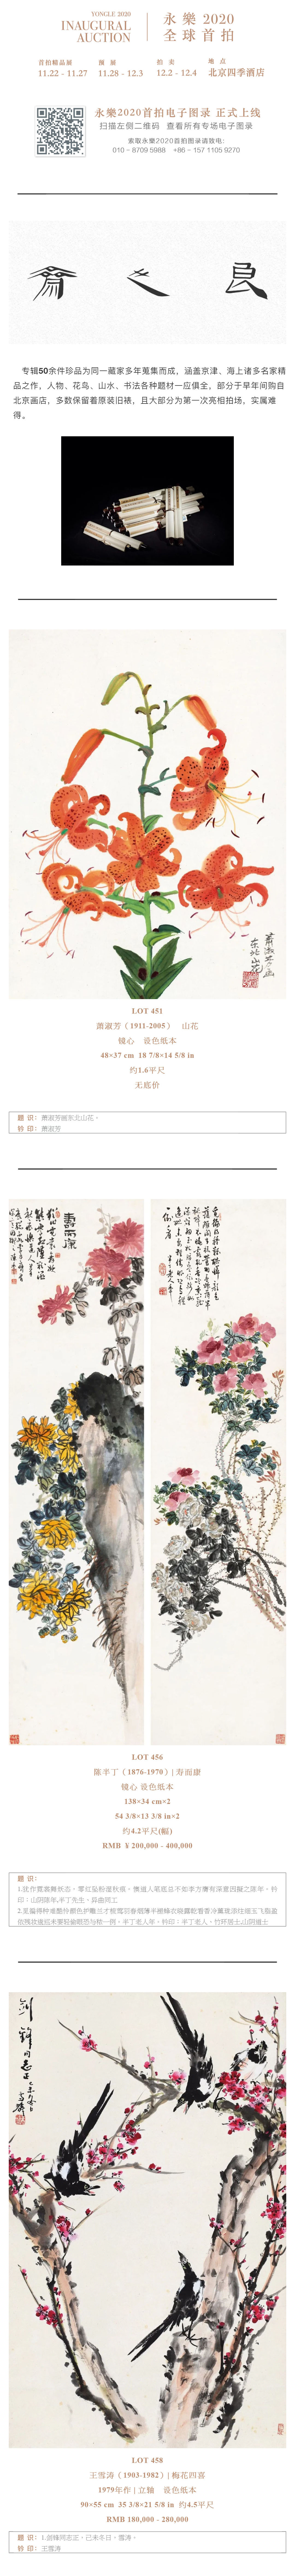 YONGLE 2020
INAUGURAL
AUCTION
永樂 2020
全球首拍
首拍精品展
11.22 - 11.27
预 展
11.28 - 12.3
拍 卖
12.2 - 12.4
地 点
北京四季酒店
永樂2020首拍电子图录 正式上线
扫描左侧二维码 查看所有专场电子图录
索取永樂2020首拍图录请致电:
010 - 8709 5988 +86 - 157 1105 9270
专辑50余件珍品为同一藏家多年蒐集而成，涵盖京津、海上诸多名家精
品之作，人物、花鸟、山水、书法各种题材一应俱全，部分于早年间购自
北京画店，多数保留着原装旧裱，且大部分为第一次亮相拍场，实属难
得。
萧淑芳画
东北山花
LOT 451
萧淑芳（1911-2005） 山花
镜心 设色纸本
48×37 cm 18 7/8×14 5/8 in
约1.6平尺
无底价
题 识：萧淑芳画东北山花。
钤 印：萧淑芳
壽而康
LOT 456
陈半丁（1876-1970）| 寿而康
镜心 设色纸本
138×34 cm×2
54 3/8×13 3/8 in×2
约4.2平尺(幅)
RMB ￥200,000 - 400,000
题 识：
劍鋒同志正
己未冬日
雪濤
LOT 458
王雪涛（1903-1982）| 梅花四喜
1979年作 | 立轴 设色纸本
90×55 cm 35 3/8×21 5/8 in 约4.5平尺
RMB 180,000 - 280,000
题 识：1.剑锋同志正。己未冬日，雪涛。
钤 印：王雪涛